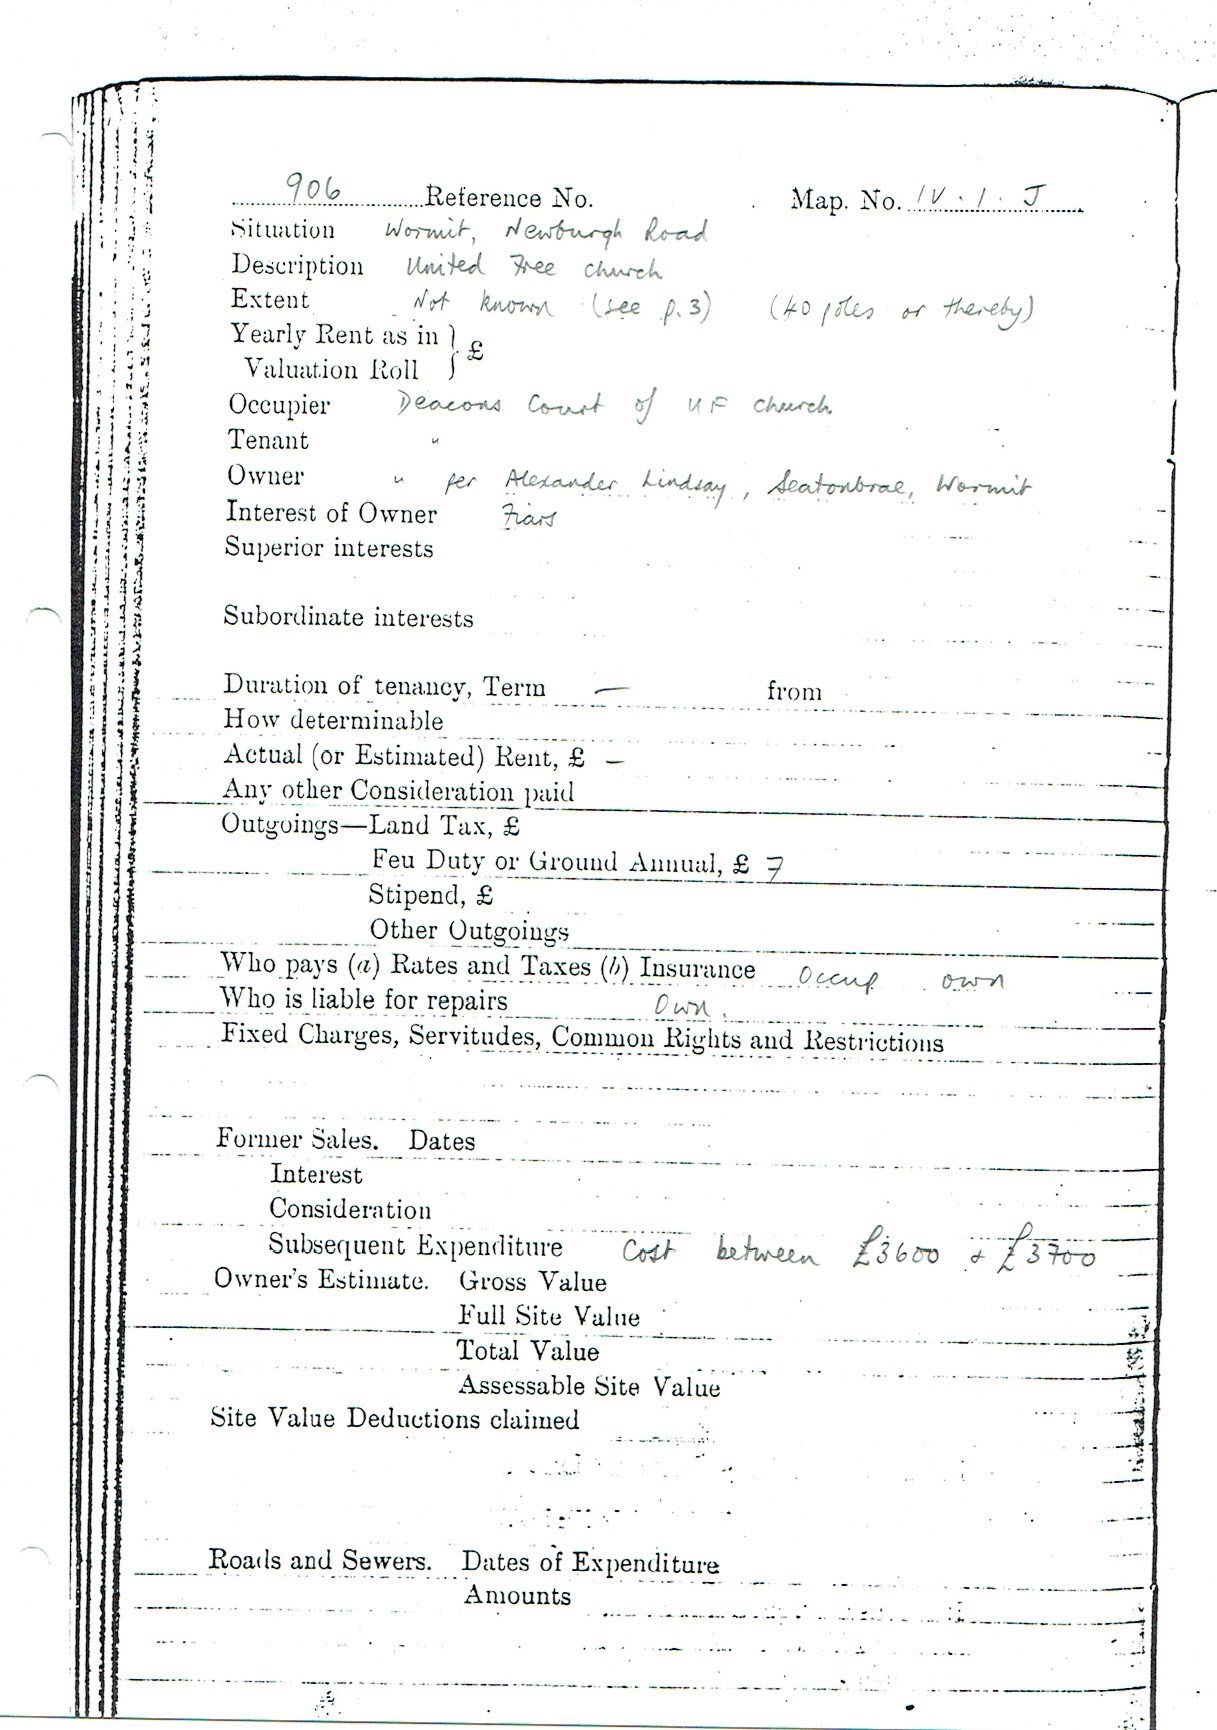 906 Reference No. Map. No. IV. 1. J
Situation Wormit, Newburgh Road
Description United Free Church
Extent Not known (see p.3) (40 poles or thereby)
Yearly Rent as in } £
Valuation Roll
Occupier Deacons Court of UF Church
Tenant "
Owner " per Alexander Lindsay, Seatonbrae, Wormit
Interest of Owner Fiars
Superior interests
Subordinate interests
Duration of tenancy, Term — from
How determinable
Actual (or Estimated) Rent, £ —
Any other Consideration paid
Outgoings—Land Tax, £
Feu Duty or Ground Annual, £ 7
Stipend, £
Other Outgoings
Who pays (a) Rates and Taxes (b) Insurance Occup own
Who is liable for repairs Own.
Fixed Charges, Servitudes, Common Rights and Restrictions
Former Sales. Dates
Interest
Consideration
Subsequent Expenditure Cost between £3600 & £3700
Owner's Estimate. Gross Value
Full Site Value
Total Value
Assessable Site Value
Site Value Deductions claimed
Roads and Sewers. Dates of Expenditure
Amounts